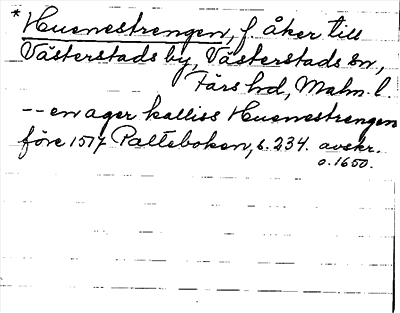 * Huenestrengen, f. åker till
Västerstads by, Västerstads sn,
Färs hd, Malm. l.
-- en ager kalliss Huenestrengen
före 1517 Palteboken, s. 234. avskr.
o. 1650.